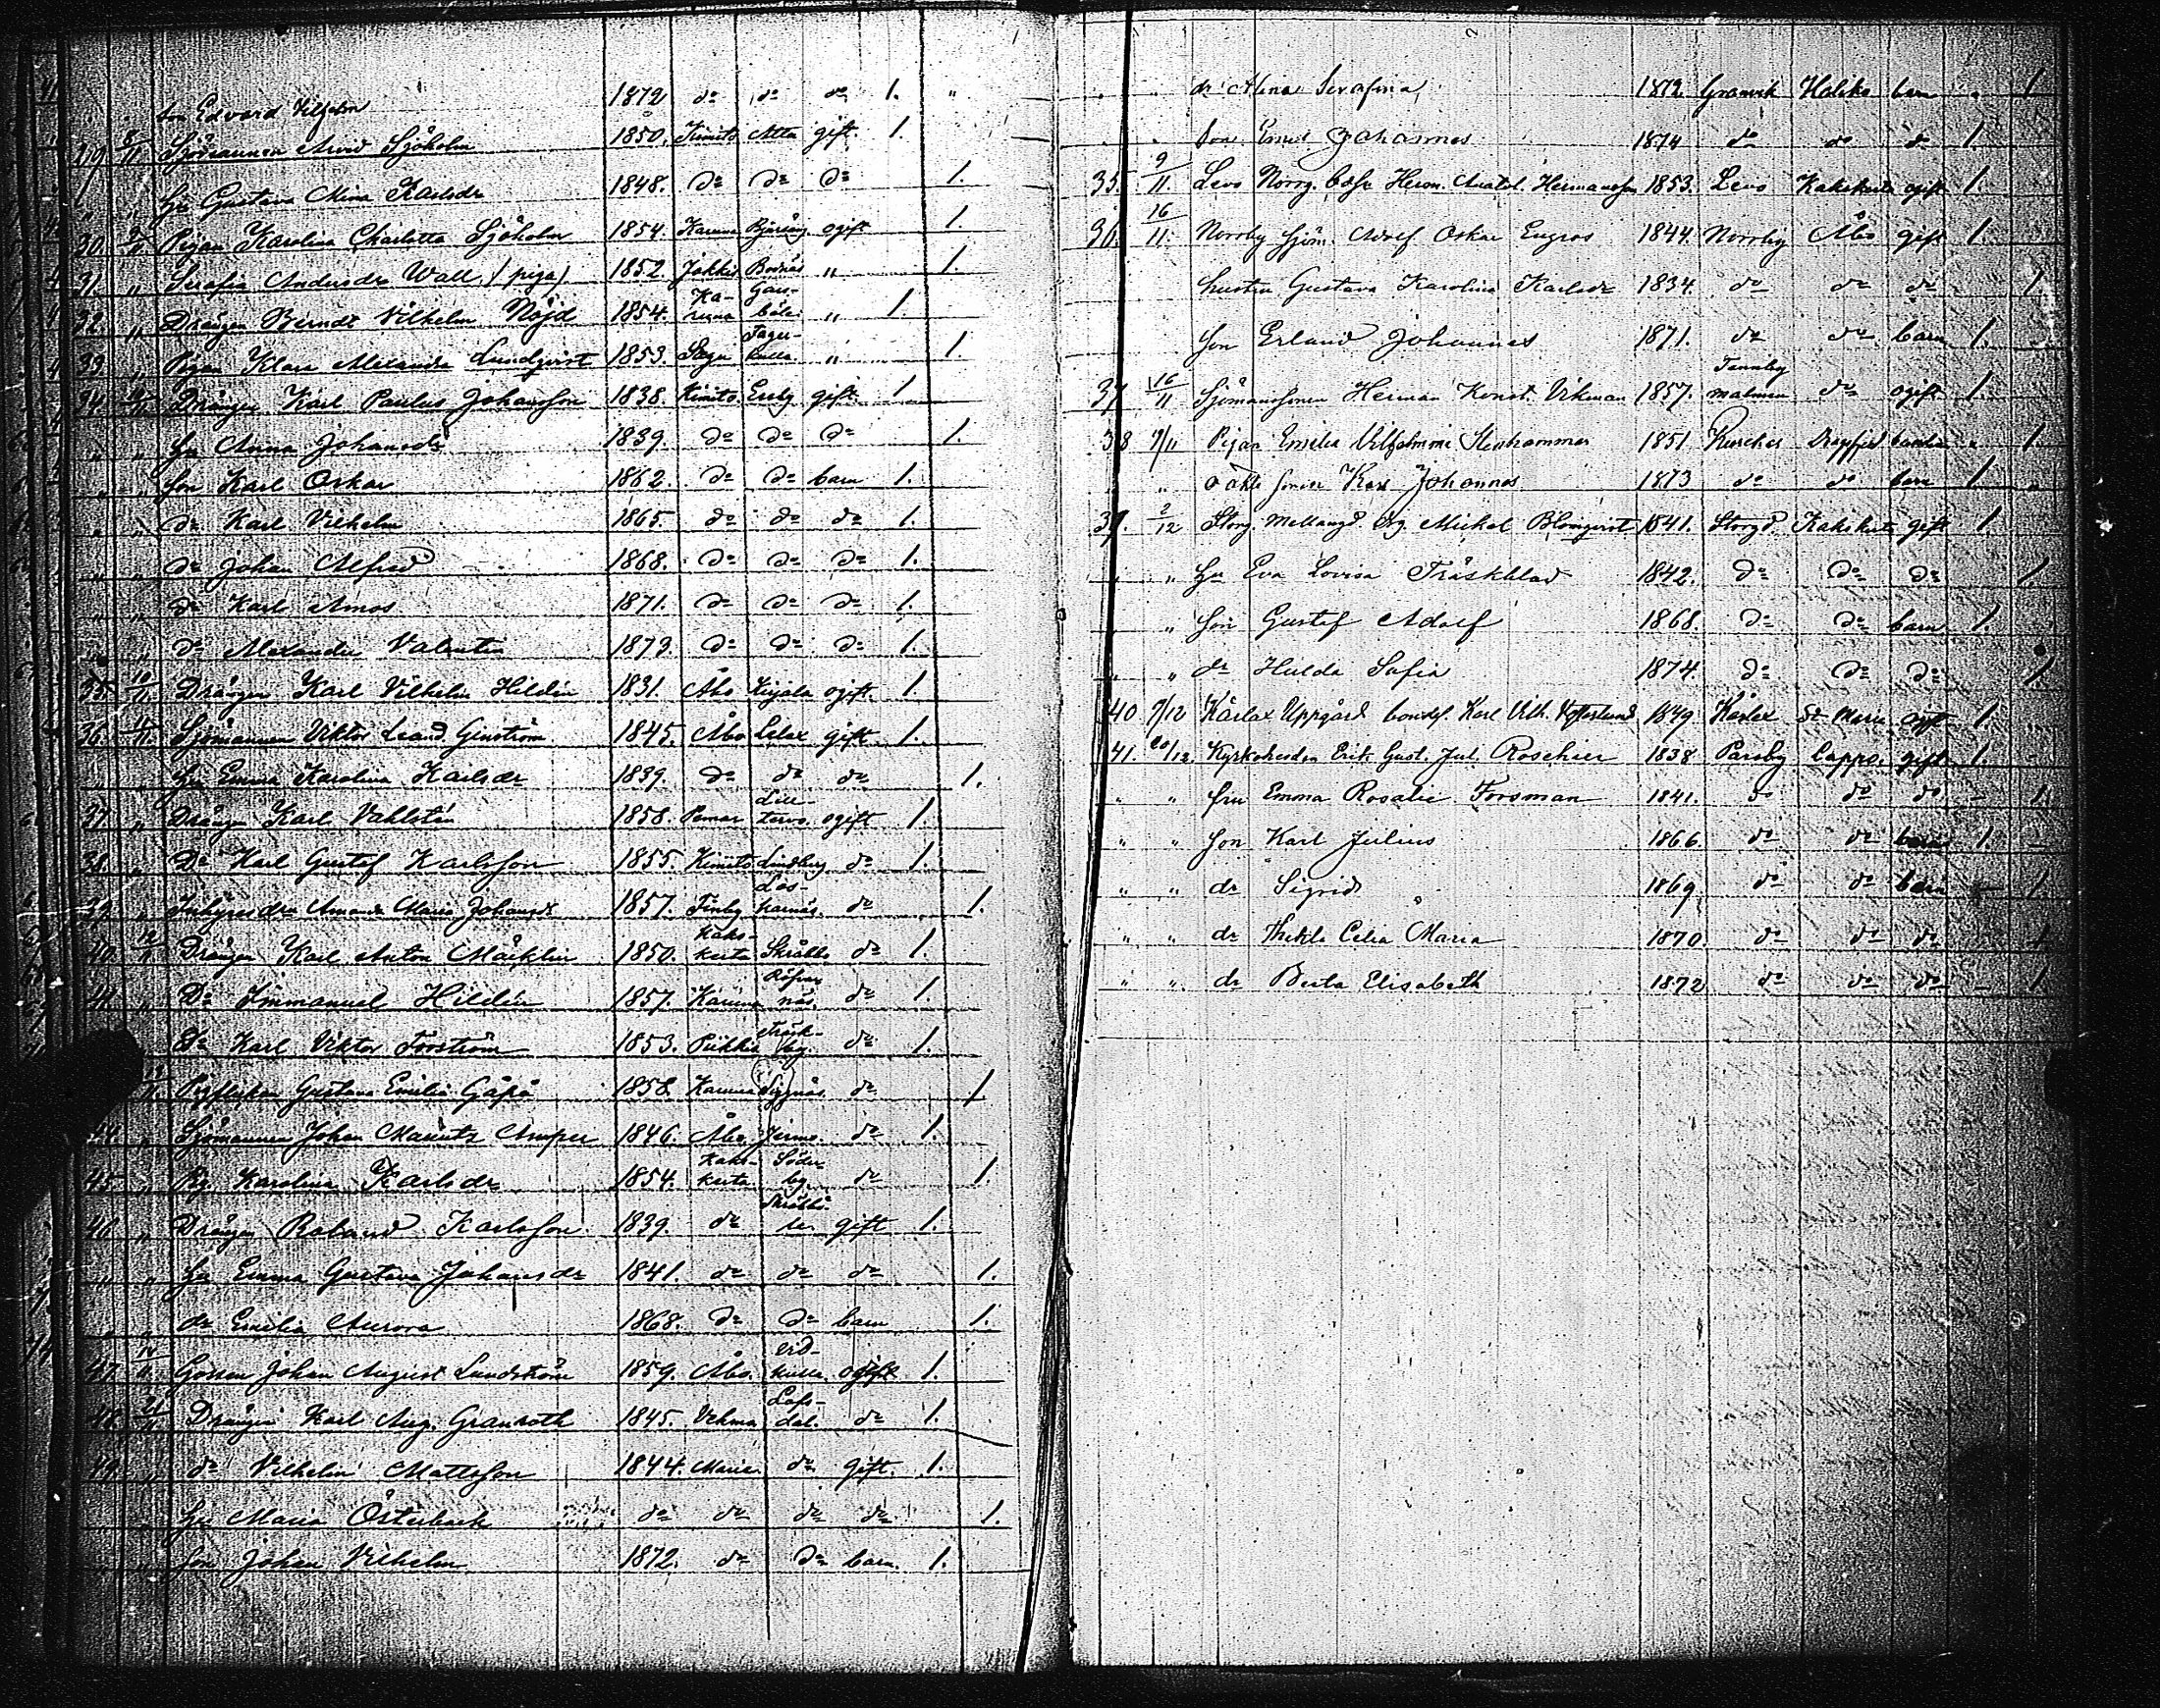 son Edvard Vilhelm 1872 do do do 1. "
29. 8/11 Sjömannen Arvid Sjöholm 1850. Kimito Atta gift. 1.
" " Hu Gustava Mina Karlsdr 1848. do do do 1.
30. 9/11 Pigan Karolina Charlotta Sjöholm 1854. Karuna ogift 1.
31. " Serafia Andersdr Wall (piga) 1852. Jokkis Bodnäs " 1.
32. " Drängen Berndt Vilhelm Nöjd 1854. Ka-runa " 1.
33. " Pigan Klara Alexandra Lundqvist 1853. Sagu Tager-kulla " 1.
34. 10/11 Drängen Karl Paulus Johansson 1838. Kimito Ersby gift. 1
" " Hu Anna Johansdr 1839. do do do 1.
" " son Karl Oskar 1862. do do barn 1.
" " do Karl Vilhelm 1865. do do do 1.
" " do Johan Alfred 1868. do do do 1.
" " do Karl Amos 1871. do do do 1.
" " do Alexander Valentin 1873. do do do 1.
35. 10/11. Drängen Karl Vilhelm Hildén 1831. Åbo Kirjala ogift. 1.
36. 11/11. Sjömannen Viktor Leand. Ginström 1845. Åbo Lelax gift. 1.
" " Hu Emma Karolina Karlsdr 1839. do do do 1.
37. " Dräng Karl Vahlstén 1858. Pemar Lill-tervo. ogift 1.
38. " Do Karl Gustaf Karlsson 1855. Kimito Lindberg do 1.
39. " Inhyses dr Amanda Maria Johansdr 1857. Finby do 1.
40. 12/11 Drängen Karl Anton Mäcklin 1850. Kaks-kerta Skräbbo do 1.
41. " Do Immanuel Hildén 1857. Karuna Röfvar-näs. do 1.
Do Karl Viktor Forström 1853. Piikkis Träsk-by. do 1.
Gustava Emilia Gåpå 1858. Karuna Siggnäs. do 1
44. " Sjömannen Johan Mauritz Amper 1846. Åbo Jermo. do 1.
45. " Pig. Karolina Karlsdr 1854. Kaks-kerta Söder-by. do 1.
46. " Drängen Roland Karlsson 1839. do gift 1.
" " Hu Emma Gustava Johansdr 1841. do do do 1.
" " dr Emilia Aurora 1868. do do barn 1.
47. 14/11. Gossen Johan August Lundström 1859. Åbo. ogift 1.
48. 21/11 Drängen Karl Aug. Granroth 1845. Vehmo Lofs-dal. do 1.
49. " do Vilhelm Mattsson 1844. Marie. do gift. 1.
" Hu Maria Österback do do do do 1.
" son Johan Vilhelm 1872. do do barn. 1.
" " dr Alina Serafina 1872. Granvik Haliko barn " 1
" " Son Emil Johannes 1874 do do do 1.
35. 9/11. Levo Norrg. Herm. Anatol. Hermansson 1853. Levo Kakskerta ogift 1.
36. 16/11. Norrby sjöm. Adolf Oskar Engros 1844. Norrby Åbo gift 1.
hustru Gustava Karolina Karlsdr 1834. do do do 1
Son Erland Johannes 1871. do do barn 1.
37 16/11 Sjömansonen Herman Konst. Vikman 1857. Tennby malmen do ogift 1.
38 19/11 Pigan Emilia Vilhelmina Stenhammar 1851 Dragsfjerd " 1
" oäkta sonen Karl Johannes 1873 do do barn 1. "
39. 2/12 Storg. Mellangd. Mickel Blomqvist 1841. Storgd. Kakskerta gift 1.
" Hu Eva Lovisa Träskblad 1842. do do do 1.
" Son Gustaf Adolf 1868. do do barn 1.
" " dr Hulda Sofia 1874. do do do 1
40 7/12 Kärlax Uppgård bondes. Karl Vilh. 1849. Kärlax St Marie ogift 1.
41. 20/12. Kyrkoherden Erik Gust. Jul. Roschier 1838 Parsby Lappo. gift 1.
" " fru Emma Rosalie Forsman 1841. do do do - 1.
" " Son Karl Julius 1866. do do barn 1.
" " dr Sigrid 1869 do do barn - 1
" " dr Thekla Celia Maria 1870. do do do 1
" " dr Berta Elisabeth 1872 do do do - 1.